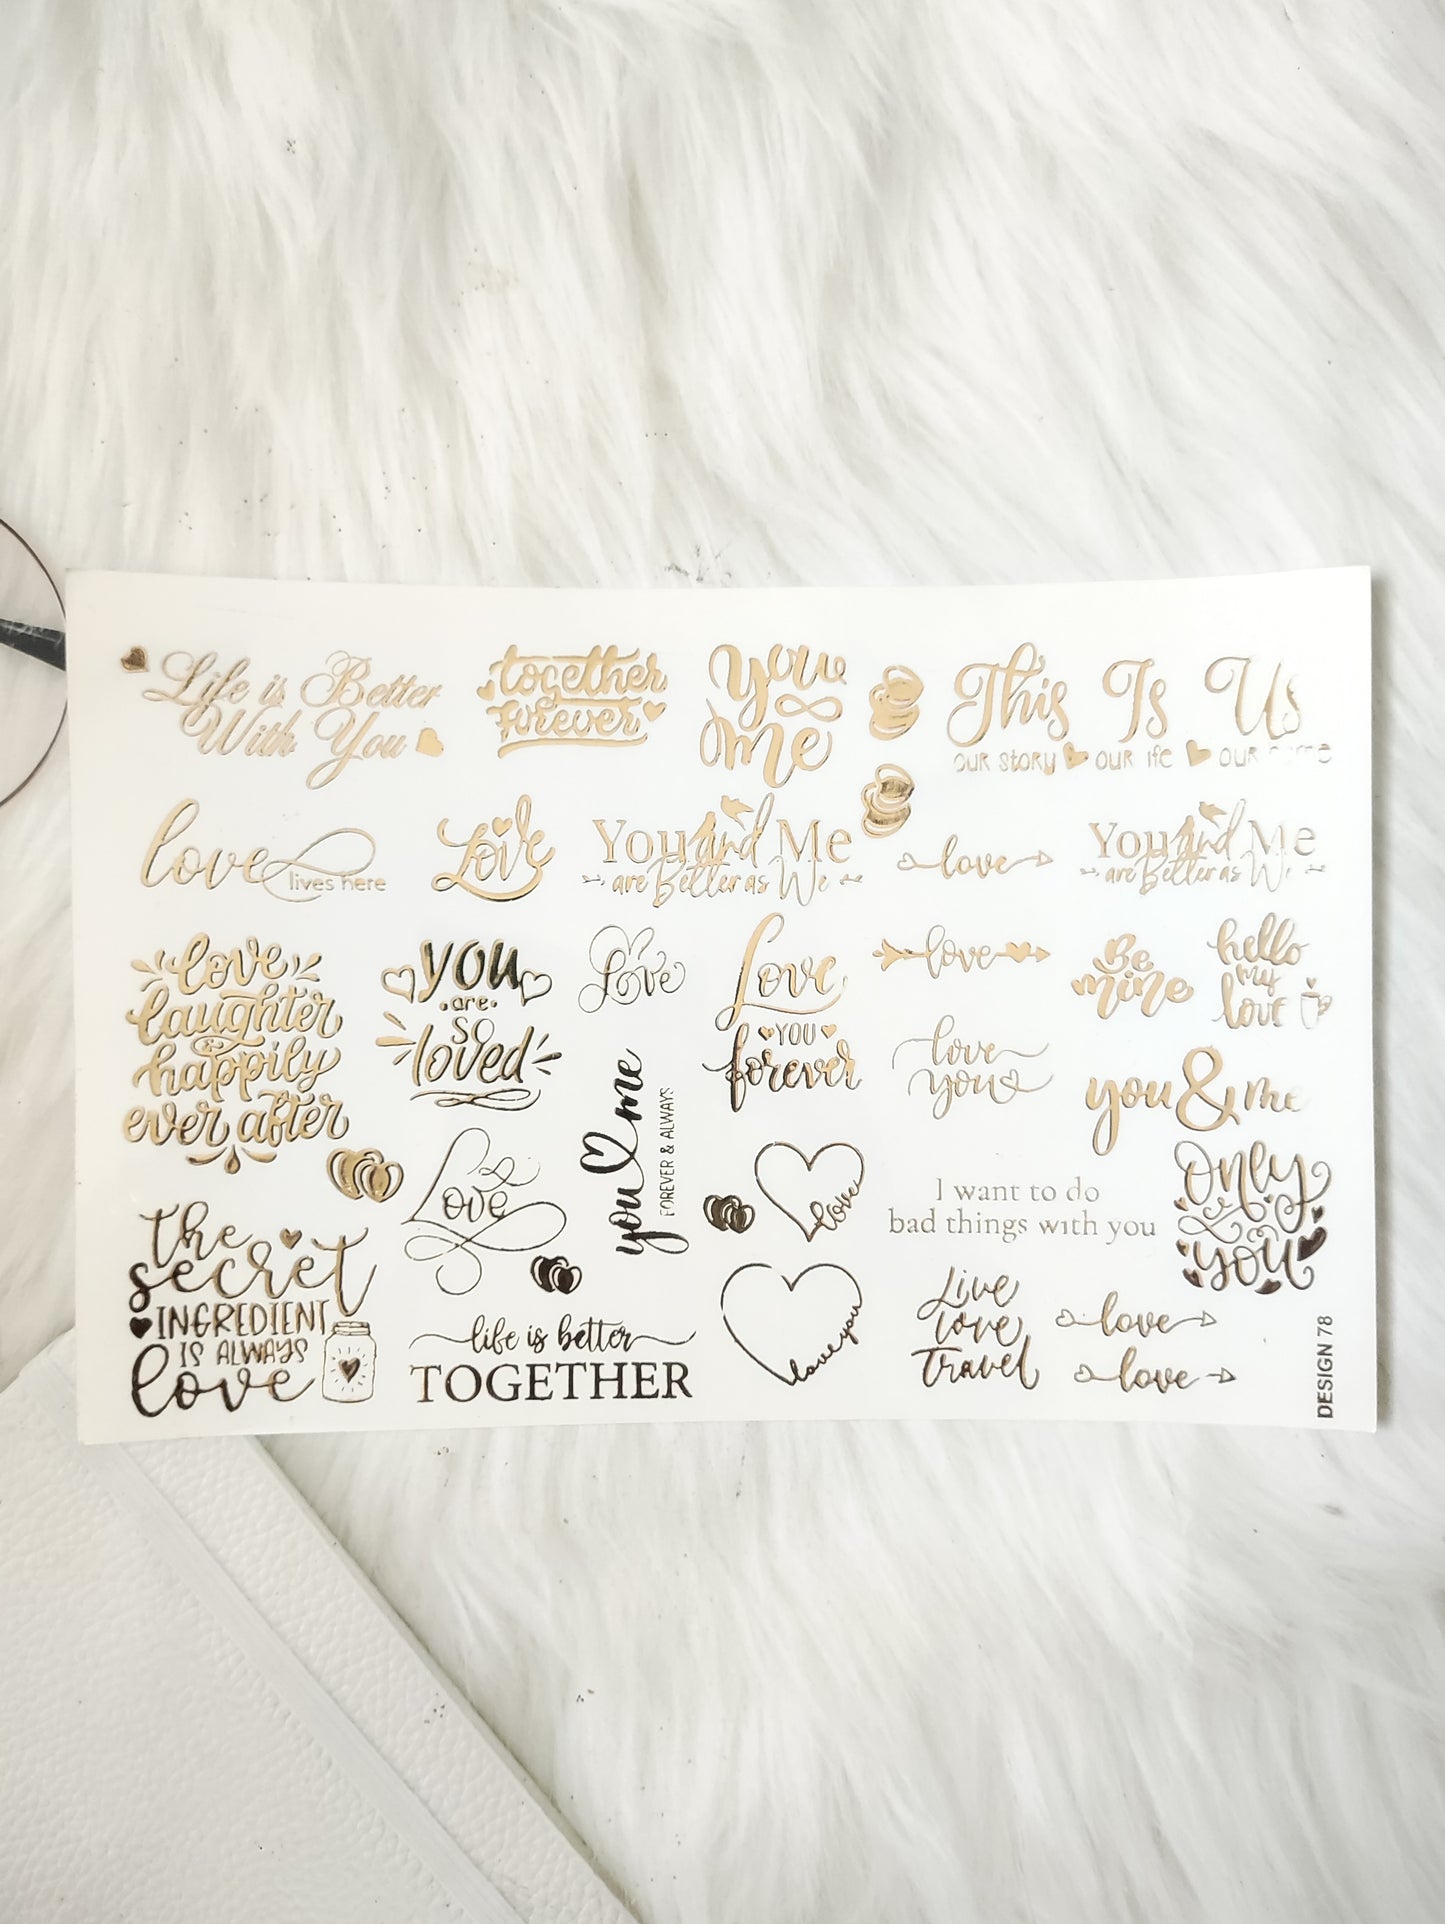 Life is Better
With You
together
forever
You
me
This Is Us
our story our life our name
love
lives here
Love
You and Me
are Better as We
love
You and Me
are Better as We
love
laughter
happily
ever after
you
are
so
loved
Love
Love
YOU
forever
love
Be
mine
hello
my
love
love
you
you & me
you me
FOREVER & ALWAYS
Love
love
I want to do
bad things with you
Only
You
the
secret
INGREDIENT
IS ALWAYS
love
life is better
TOGETHER
love you
Live
love
travel
love
love
DESIGN 78